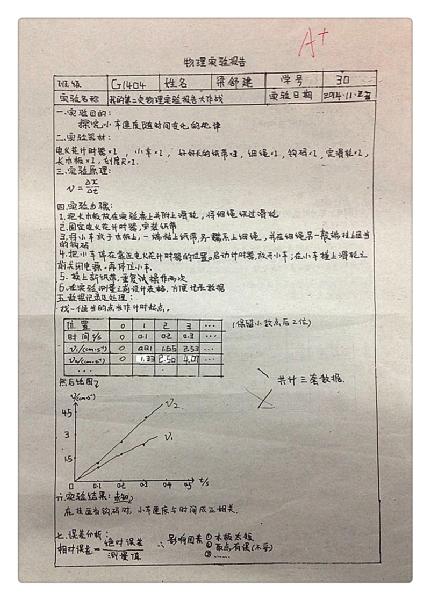 A+
物理实验报告
班级 G1404 姓名 梁舒建 学号 30
实验名称 我的第二次物理实验报告大作战 实验日期 2014.11.
一.实验目的:
探究小车速度随时间变化的规律
二.实验器材:
电火花计时器×1, 小车×1, 好好长的纸带×3, 细绳×1, 钩码×1, 定滑轮×1,
长木板×1, 刻度尺×1.
三.实验原理:
v=Δx/Δt
四.实验步骤:
1.把长木板放在实验桌上并附上滑轮,将细绳绕过滑轮
2.固定电火花计时器,安装纸带
3.将小车放于木板上,一端粘上纸带,另一端系上细绳,并在细绳另一端挂上适当
的钩码
4.把小车停在靠近电火花计时器的位置,启动计时器,放开小车;在小车撞上滑轮之
前关闭电源,再停止小车.
5.换上新纸带,重复试操作两次
6.在实验测量之前设计表格,方便记录数据
五.数据记录及处理:
找一个适当的点当作计时起点.
位置 0 1 2 3 ···
(保留小数点后2位)
时间t/s 0 0.1 0.2 0.3 ···
v₁/(cm·s⁻¹) 0 0.81 1.65 2.53 ···
v₂/(cm·s⁻¹) 0 1.33 2.50 4.07 ···
···
共计三套数据.
然后绘图?
v/(cm·s⁻¹)
4.5
v₂
3
v₁
1.5
0 0.1 0.2 0.3 0.4 0.5 t/s
六.实验结果:
在挂适当钩码时,小车速度与时间成正相关.
七.误差分析:
相对误差=绝对误差/测量值
∴影响因素 ① 木板太短
② 取点有误(不要)
③ ······